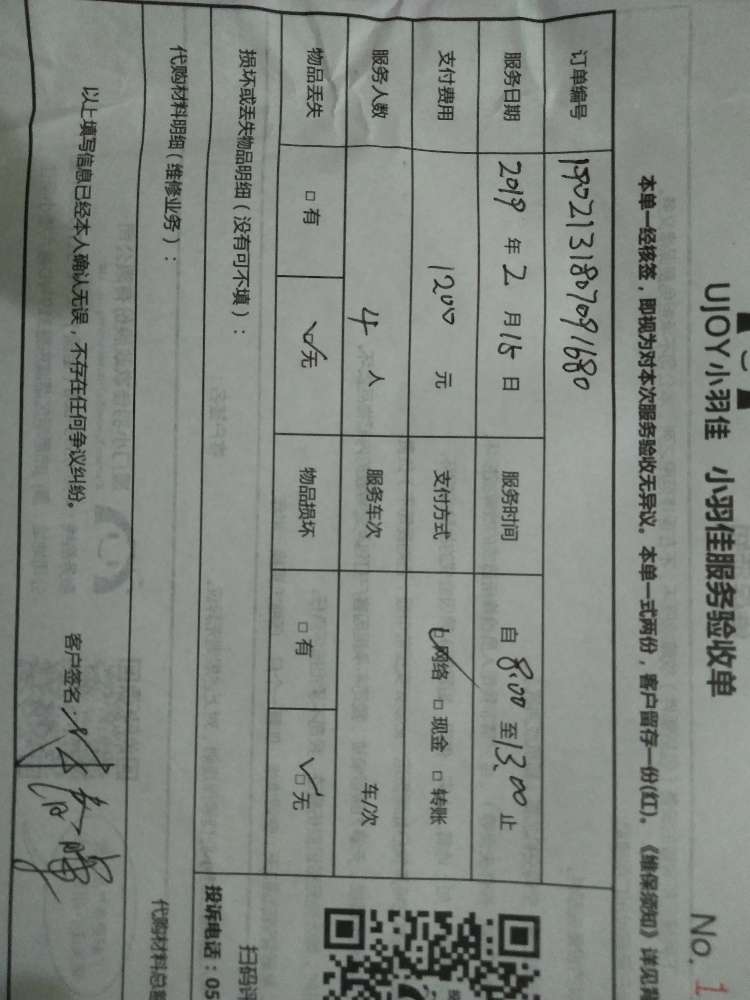 UJOY小羽佳 小羽佳服务验收单
No. 1
本单一经核签，即视为对本次服务验收无异议。本单一式两份，客户留存一份(红)。《维保须知》详见
订单编号 1902131807091680
服务日期 2019 年 2 月 15 日 服务时间 自 8:00 至 13:00 止
支付费用 1200 元 支付方式 ☑网络 □现金 □转账
服务人数 4 人 服务车次 车/次
物品丢失 □有 ☑无 物品损坏 □有 ☑无
损坏或丢失物品明细（没有可不填）：
扫码评
投诉电话：05
代购材料明细（维修业务）：
代购材料总
以上填写信息已经本人确认无误，不存在任何争议纠纷。 客户签名：